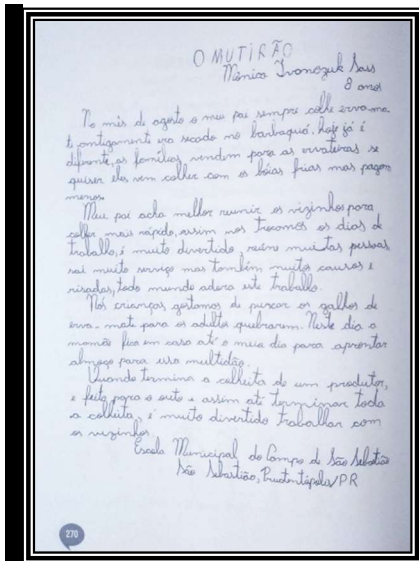 O MUTIRÃO
Mônica Ivonczuk Sass
8 anos
No mês de agosto o meu pai sempre colhe erva-ma
te, antigamente era secado no barbaquá, hoje já é
difrente, as famílias vendem para as ervateras se
quiser eles vem colher com os bóias frias mas pagam
menos.
Meu pai acha melhor reunir os vizinhos para
colher mais rápido, assim nos trocamos os dias de
trabalho, é muito divertido, reúne muitas pessoas
sai muito serviço mas também muitos causos e
risadas, todo mundo adora este trabalho.
Nós crianças gostamos de puxar os galhos de
erva-mate para os adultos quebrarem. Neste dia a
mamãe fica em casa até o meio dia para aprontar
almoço para essa multidão.
Quando termina a colheita de um produtor,
é feito para o outo e assim até terminar toda
a colheita, é muito divertido trabalhar com
os vizinhos.
Escola Municipal do Campo de São Sebastião
São Sebastião, Prudentópolis/PR
270